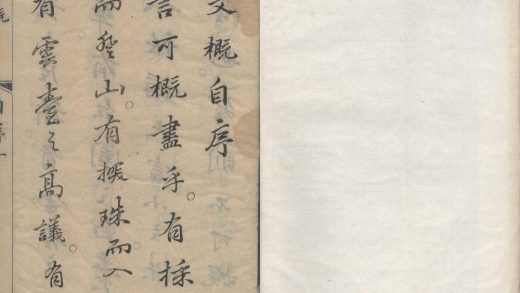 文概自序
言可概盡乎。有採
而登山。有探珠而入
有雲臺之高議。有
自序一